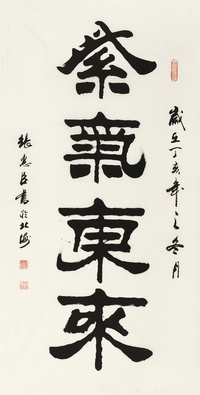 歲在丁亥年之冬月
紫氣東來
張忠臣書於北海